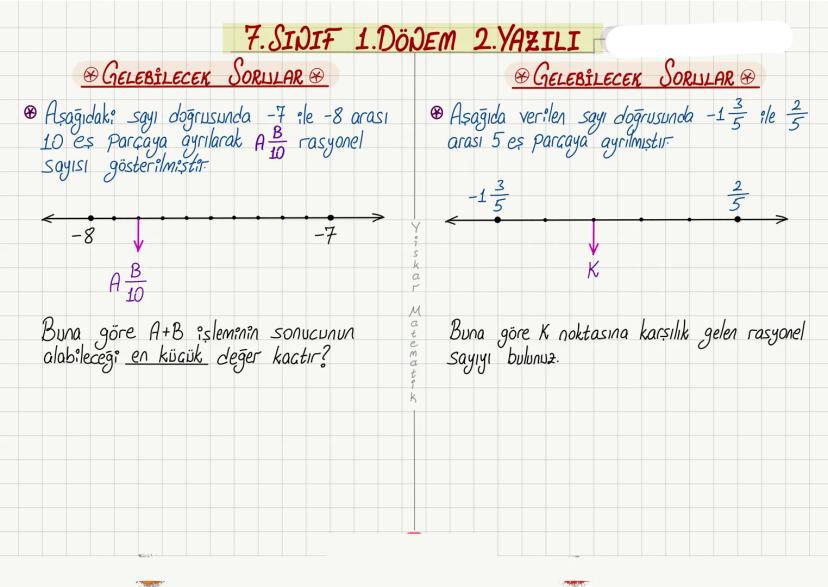 7. SINIF 1. DÖNEM 2. YAZILI
GELEBİLECEK SORULAR
Aşağıdaki sayı doğrusunda -7 ile -8 arası
10 eş parçaya ayrılarak A B/10 rasyonel
sayısı gösterilmiştir.
-8 -7
A B/10
Buna göre A+B işleminin sonucunun
alabileceği en küçük değer kaçtır?
Yıskar Matematik
GELEBİLECEK SORULAR
Aşağıda verilen sayı doğrusunda -1 3/5 ile 2/5
arası 5 eş parçaya ayrılmıştır.
-1 3/5 2/5
K
Buna göre K noktasına karşılık gelen rasyonel
sayıyı bulunuz.